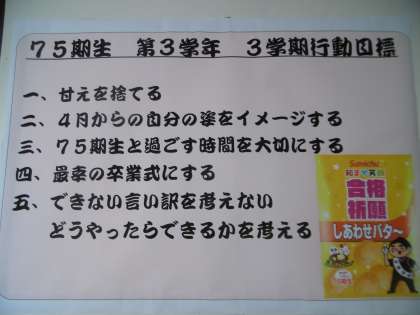 75期生 第3学年 3学期行動目標
一、甘えを捨てる
二、4月からの自分の姿をイメージする
三、75期生と過ごす時間を大切にする
四、最幸の卒業式にする
五、できない言い訳を考えない
どうやったらできるかを考える
合格
祈願
しあわせバタ〜